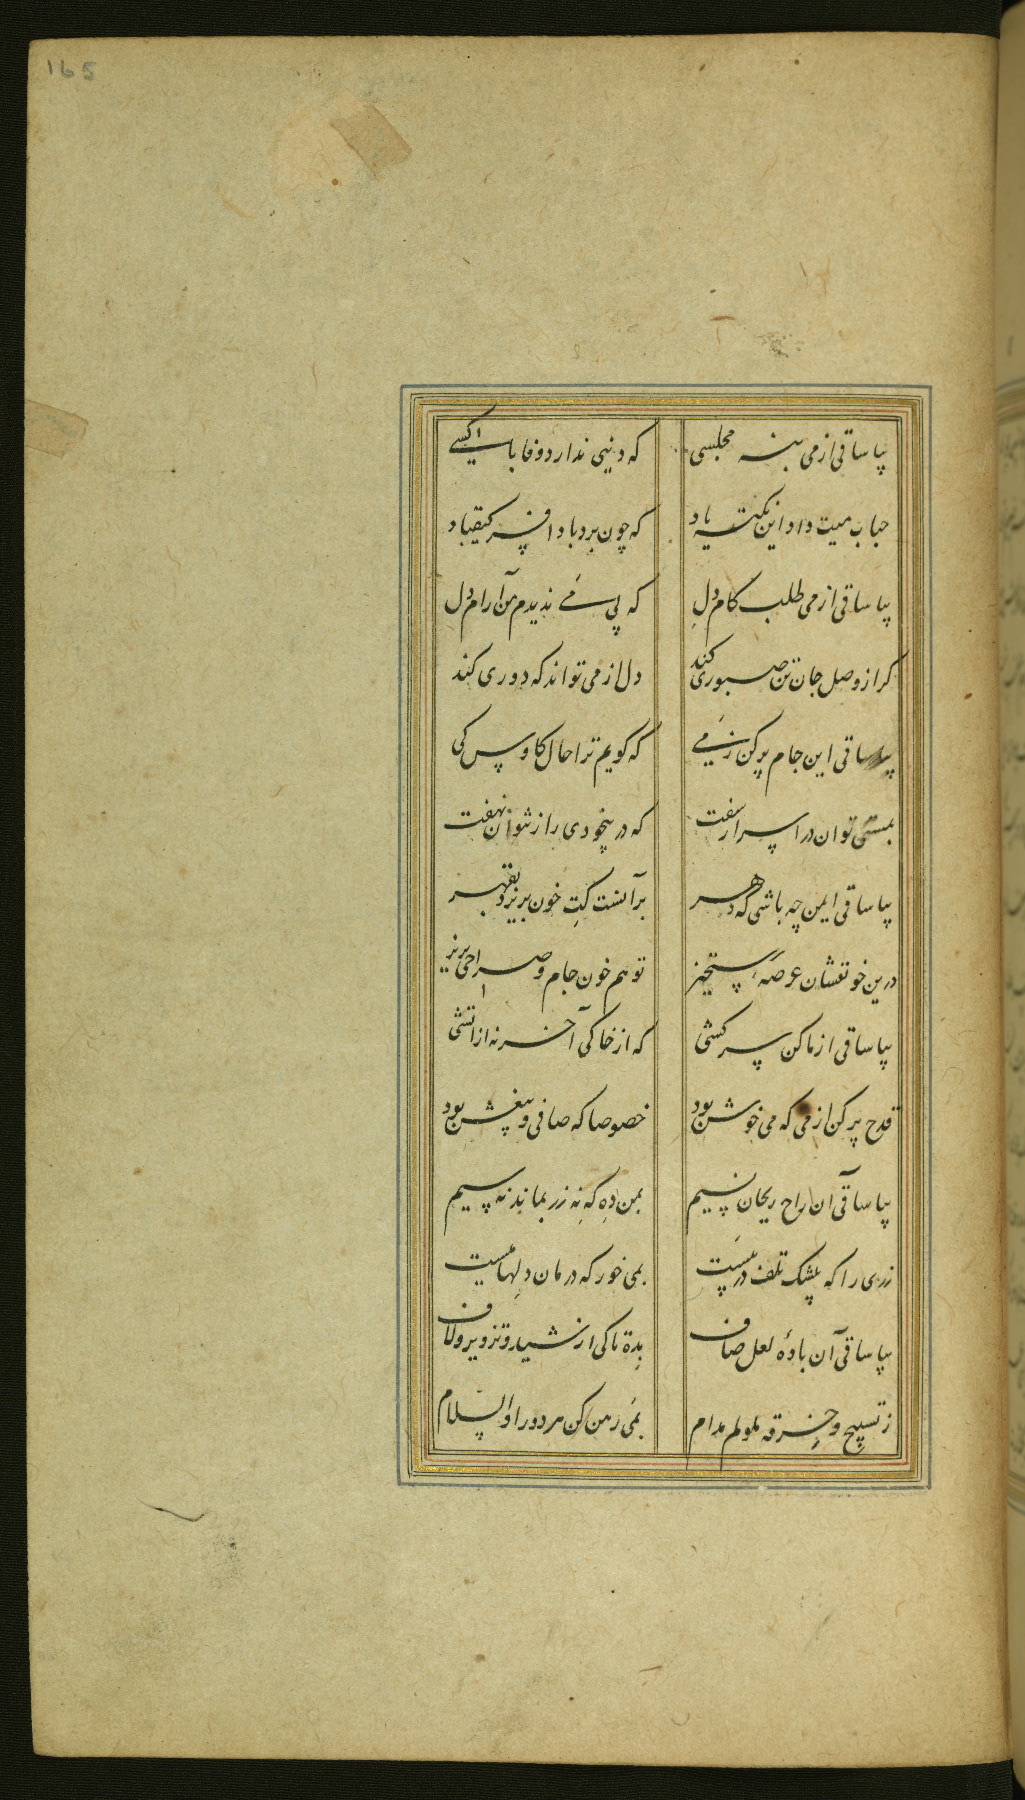 165
بیا ساقی از می بنه مجلسی که دنیی ندارد وفا با کسی
حباب میت داد این نکته یاد که چون برد باد افسر کیقباد
بیا ساقی از می طلب کام دل که بی می ندیدم من آرام دل
کر از وصل جان تن صبوری کند دل از می تواند که دوری کند
بیا ساقی این جام پر کن ز می که کویم ترا حال کاوس کی
بمستی توان در اسرار سفت که در بیخودی راز نتوان نهفت
بیا ساقی ایمن چه باشی که دهر برآنست کت خون بریزد بقهر
درین خونفشان عرصه رستخیز تو هم خون جام و صراحی بریز
بیا ساقی از ما مکن سرکشی که از خاکی آخر نه از اتشی
قدح پر کن از می که می خوش بود خصوصا که صافی و بیغش بود
بیا ساقی آن راح ریحان نسیم بمن ده که نه زر بماند نه سیم
زری را که بیشک تلف در پیست بمی خور که درمان دلها میست
بیا ساقی آن باده لعل صاف بده تا کی از شید و تزویر و لاف
ز تسبیح و خرقه ملولم مدام بمی رهن کن هر دو را والسلام